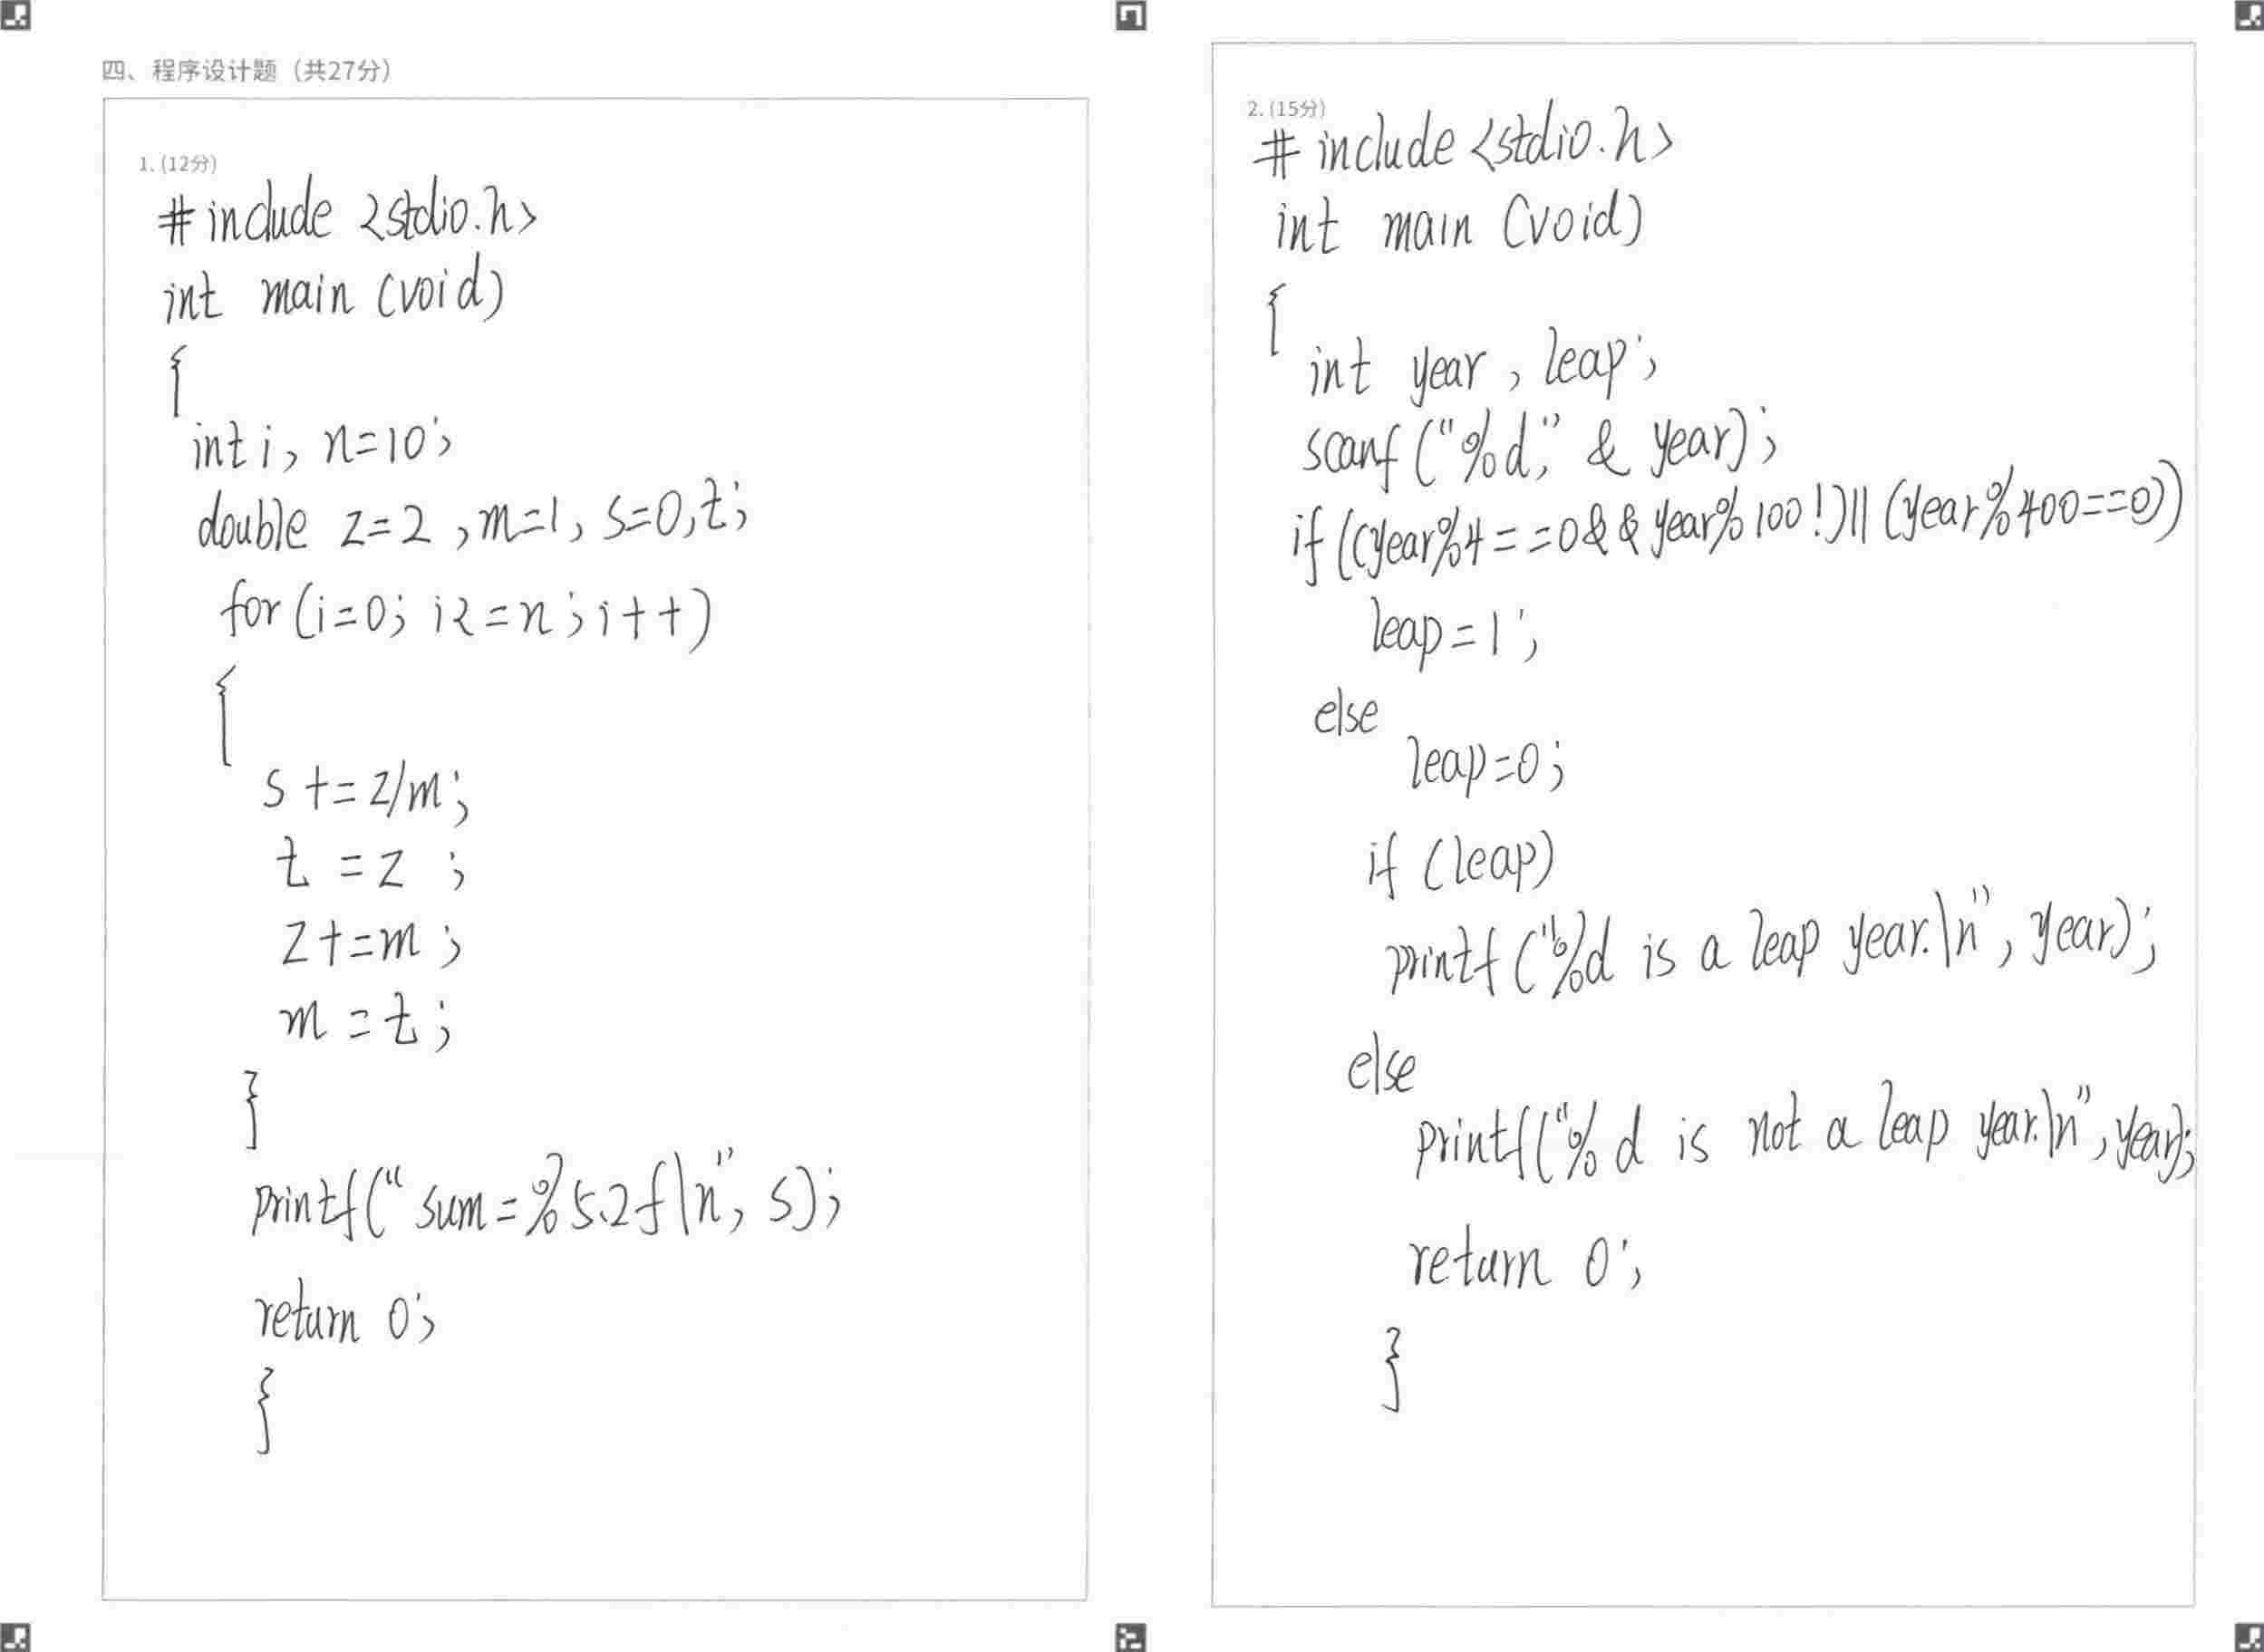 四、程序设计题（共27分）
1. (12分)
# include <stdio.h>
int main (void)
{
int i, n=10;
double z=2, m=1, s=0, t;
for (i=0; i<=n; i++)
{
s += z/m;
t = z ;
z+=m ;
m = t ;
}
printf(" sum=%5.2f\n", s);
return 0;
}
2. (15分)
# include <stdio.h>
int main (void)
{
int year, leap;
scanf ("%d," & year);
if ((year%4==0&&year%100!)||(year%400==0))
leap=1;
else
leap=0;
if (leap)
printf ("%d is a leap year.\n", year);
else
printf("%d is not a leap year.\n", year);
return 0;
}